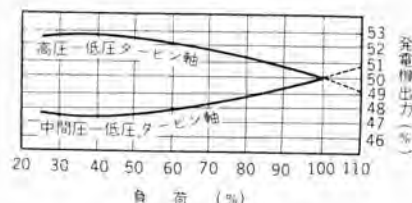 高圧－低圧タービン軸
中間圧－低圧タービン軸
53
52
51
50
49
48
47
46
発電機出力(%)
20 30 40 50 60 70 80 90 100 110
負荷 (%)